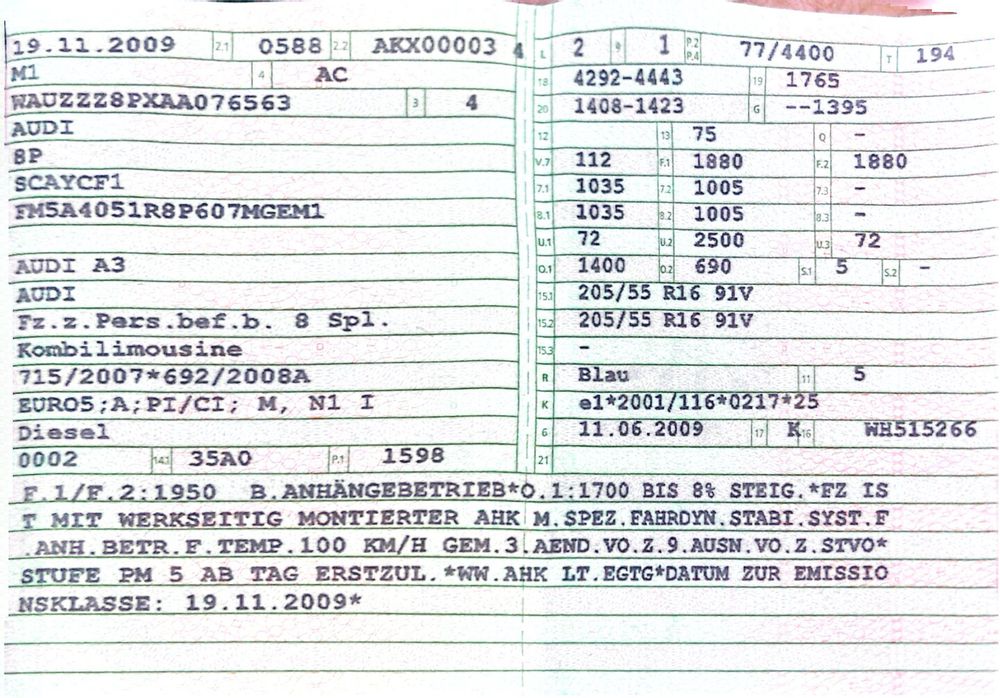 19.11.2009 2.1 0588 2.2 AKX00003 4 L 2 9 1 P.2 P.4 77/4400 T 194
M1 4 AC 18 4292-4443 19 1765
WAUZZZ8PXAA076563 3 4 20 1408-1423 G --1395
AUDI 12 13 75 Q -
8P V.7 112 F.1 1880 F.2 1880
SCAYCF1 7.1 1035 7.2 1005 7.3 -
FM5A4051R8P607MGEM1 8.1 1035 8.2 1005 8.3 -
U.1 72 U.2 2500 U.3 72
AUDI A3 O.1 1400 O.2 690 S.1 5 S.2 -
AUDI 15.1 205/55 R16 91V
Fz.z.Pers.bef.b. 8 Spl. 15.2 205/55 R16 91V
Kombilimousine 15.3 -
715/2007*692/2008A R Blau 11 5
EURO5;A;PI/CI; M, N1 I K e1*2001/116*0217*25
Diesel 6 11.06.2009 17 K 16 WH515266
0002 14.1 35A0 P.1 1598 21
F.1/F.2:1950 B.ANHÄNGEBETRIEB*O.1:1700 BIS 8% STEIG.*FZ IS
T MIT WERKSEITIG MONTIERTER AHK M.SPEZ.FAHRDYN.STABI.SYST.F
.ANH.BETR.F.TEMP.100 KM/H GEM.3.AEND.VO.Z.9.AUSN.VO.Z.STVO*
STUFE PM 5 AB TAG ERSTZUL.*WW.AHK LT.EGTG*DATUM ZUR EMISSIO
NSKLASSE: 19.11.2009*